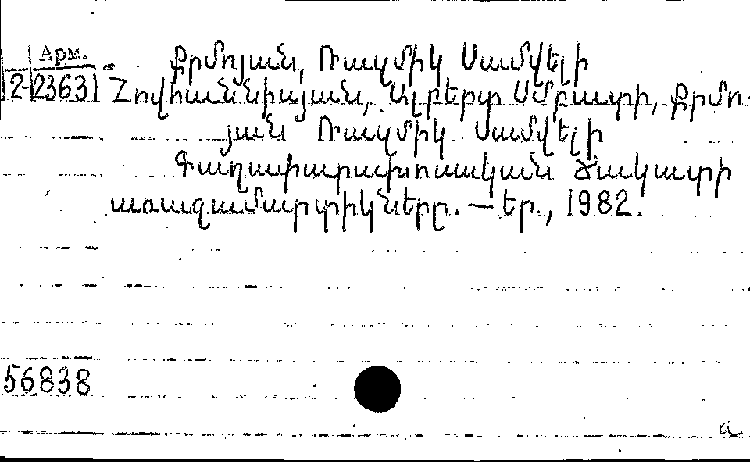 Арм.
2-23631
Քրմոյան, Ռազմիկ Սամվելի
Հովհաննիսյան, Ալբերտ Սմբատի, Քրմո-
յան Ռազմիկ Սամվելի
Գաղափարախոսական ճակատի
առաջամարտիկները. — Եր., 1982.
56838